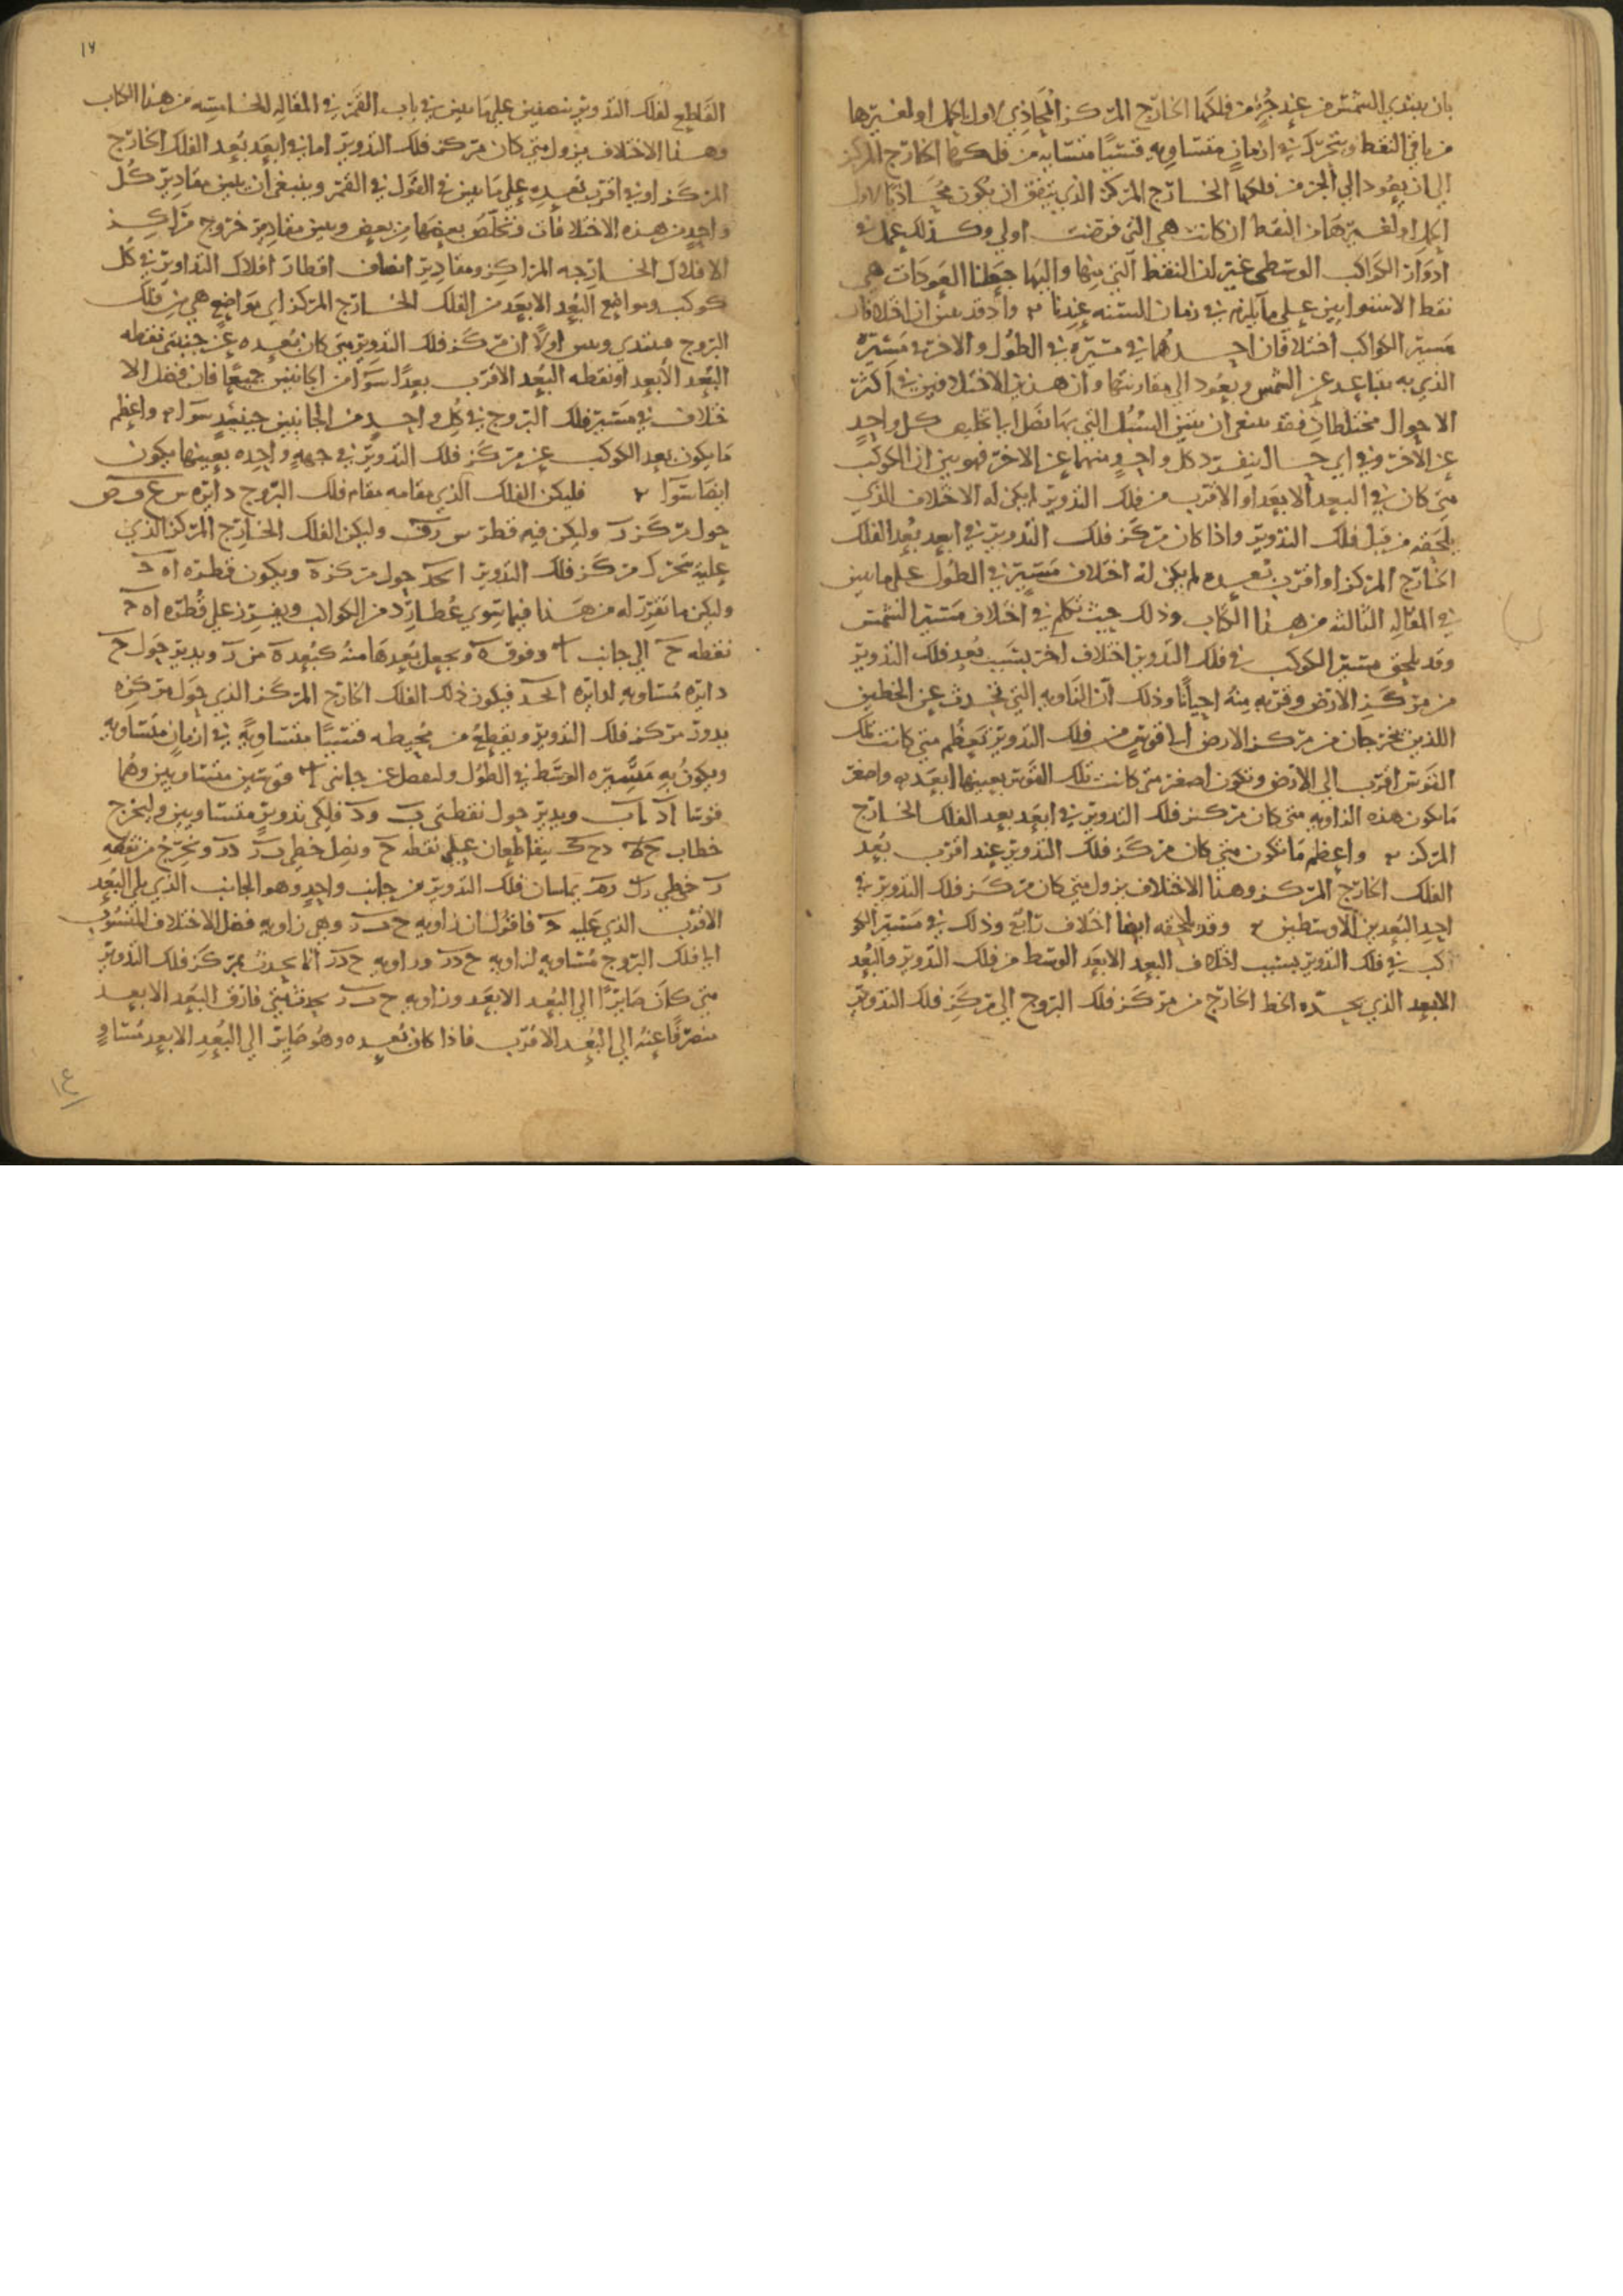 بان يبتدي الشمس من عند جزء من فلكها الخارج المركز المحاذي لاول الحمل او لغيرها
من باقي النقط وتتحرك في ازمان متساويه قسيا متشابه من فلكها الخارج المركز
الى ان يعود الى الجزء من فلكها الخارج المركز الذي يتفق ان يكون محاذيا لاول
الحمل او لغيرها من النقط ان كانت هي التي فرضت اولى وكذلك يعمل في
ادوار الكواكب الوسطى غير ان النقط التي منها واليها جعلنا العودات هي
نقط الاستوايين على ما يلزم في زمان السنه عندنا واذ قد تبين ان اختلافات
مسير الكواكب اختلافان احدهما في مسيره في الطول والاخر في مسيره
الذي به يتباعد عن الشمس ويعود الى مقارنتها وان هذين الاختلافين في اكثر
الاحوال مختلطان فقد ينبغي ان نبين السبل التي بها نصل الى تخليص كل واحد
عن الاخر وفي اي حال ينفرد كل واحد منهما عن الاخر فهو بين ان الكوكب
متى كان في البعد الابعد او الاقرب من فلك التدوير لم يكن له الاختلاف الذي
يلحقه من قبل فلك التدوير واذا كان مركز فلك التدوير في ابعد بعد الفلك
الخارج المركز او اقرب بعده لم يكن له اختلاف مسير في الطول على ما بين
في المقاله الثالثه من هذا الكتاب وذلك حيث تكلم في اختلاف مسير الشمس
وقد يلحق مسير الكوكب في فلك التدوير اختلاف اخر بسبب بعد فلك التدوير
من مركز الارض وقربه منه احيانا وذلك ان الزاويه التي تحدث عن الخطين
اللذين يخرجان من مركز الارض الى قوس من فلك التدوير تعظم متى كانت تلك
القوس اقرب الى الارض وتكون اصغر متى كانت تلك القوس بعينها ابعد واصغر
ما يكون هذه الزاويه متى كان مركز فلك التدوير في ابعد بعد الفلك الخارج
المركز واعظم ما تكون متى كان مركز فلك التدوير عند اقرب بعد
الفلك الخارج المركز وهذا الاختلاف يزول متى كان مركز فلك التدوير في
احد البعدين الاوسطين وقد يلحقه ايضا اختلاف رابع وذلك في مسير الكو
كب في فلك التدوير بسبب اختلاف البعد الابعد الوسط من فلك التدوير والبعد
الابعد الذي يحده الخط الخارج من مركز فلك البروج الى مركز فلك التدوير
١٦
القاطع لفلك التدوير بنصفين على ما بين في باب القمر في المقاله الخامسه من هذا الكتاب
وهذا الاختلاف يزول متى كان مركز فلك التدوير اما في ابعد بعد الفلك الخارج
المركز او في اقرب بعده على ما بين في القول في القمر وينبغي ان نبين مقادير كل
واحد من هذه الاختلافات ونخلص بعضها من بعض ونبين مقادير خروج مراكز
الافلاك الخارجه المراكز ومقادير انصاف اقطار افلاك التداوير في كل
كوكب ومواضع البعد الابعد من الفلك الخارج المركز اي مواضع هي من فلك
البروج فنبتدي ونبين اولا ان مركز فلك التدوير متى كان بعده عن جنبتي نقطه
البعد الابعد او نقطه البعد الاقرب بعدا سوا من الجانبين جميعا فان فضل الا
ختلاف في مسير فلك البروج في كل واحد من الجانبين حينئذ سوا واعظم
ما يكون بعد الكوكب عن مركز فلك التدوير في جهه واحده بعينها يكون
ايضا سوا فليكن الفلك الذي مقامه مقام فلك البروج دايره س ع ف ص
حول مركز ر وليكن فيه قطر س ر ف وليكن الفلك الخارج المركز الذي
عليه تحرك مركز فلك التدوير حول مركز ه ويكون قطره
وليكن ما نقرر له من هذا فيما سوى عطارد من الكواكب ويفرز على قطره
نقطه ح الى جانب وفوق ه ونجعل بعدها منه كبعد ه من ر وندير حول ح
دايره مساويه لدايره فيكون ذلك الفلك الخارج المركز الذي حول مركزه
يدور مركز فلك التدوير ويقطع من محيطه قسيا متساويه في ازمان متساويه
ويكون به مسيره الوسط في الطول ولنفصل عن جانبي ا قوسين متساويين وهما
قوسا ا د ا ب وندير حول نقطتي ب و د فلكي تدوير متساويين وليخرج
خطا يتقاطعان على نقطه ح ونصل خطي ب ر د ر ونخرج من نقطه
ر خطي يماسان فلك التدوير من جانب واحد وهو الجانب الذي يلي البعد
الاقرب الذي عليه فاقول ان زاويه ح ب ر وهي زاويه فضل الاختلاف المنسوب
الى فلك البروج مساويه لزاويه ح د ر وزاويه ح د ر انما يحدث بمركز فلك التدوير
متى كان صايرا الى البعد الابعد وزاويه ح ب ر يحدث متى فارق البعد الابعد
منصرفا عنه الى البعد الاقرب فاذا كان بعده وهو صاير الى البعد الابعد مساو
١٤